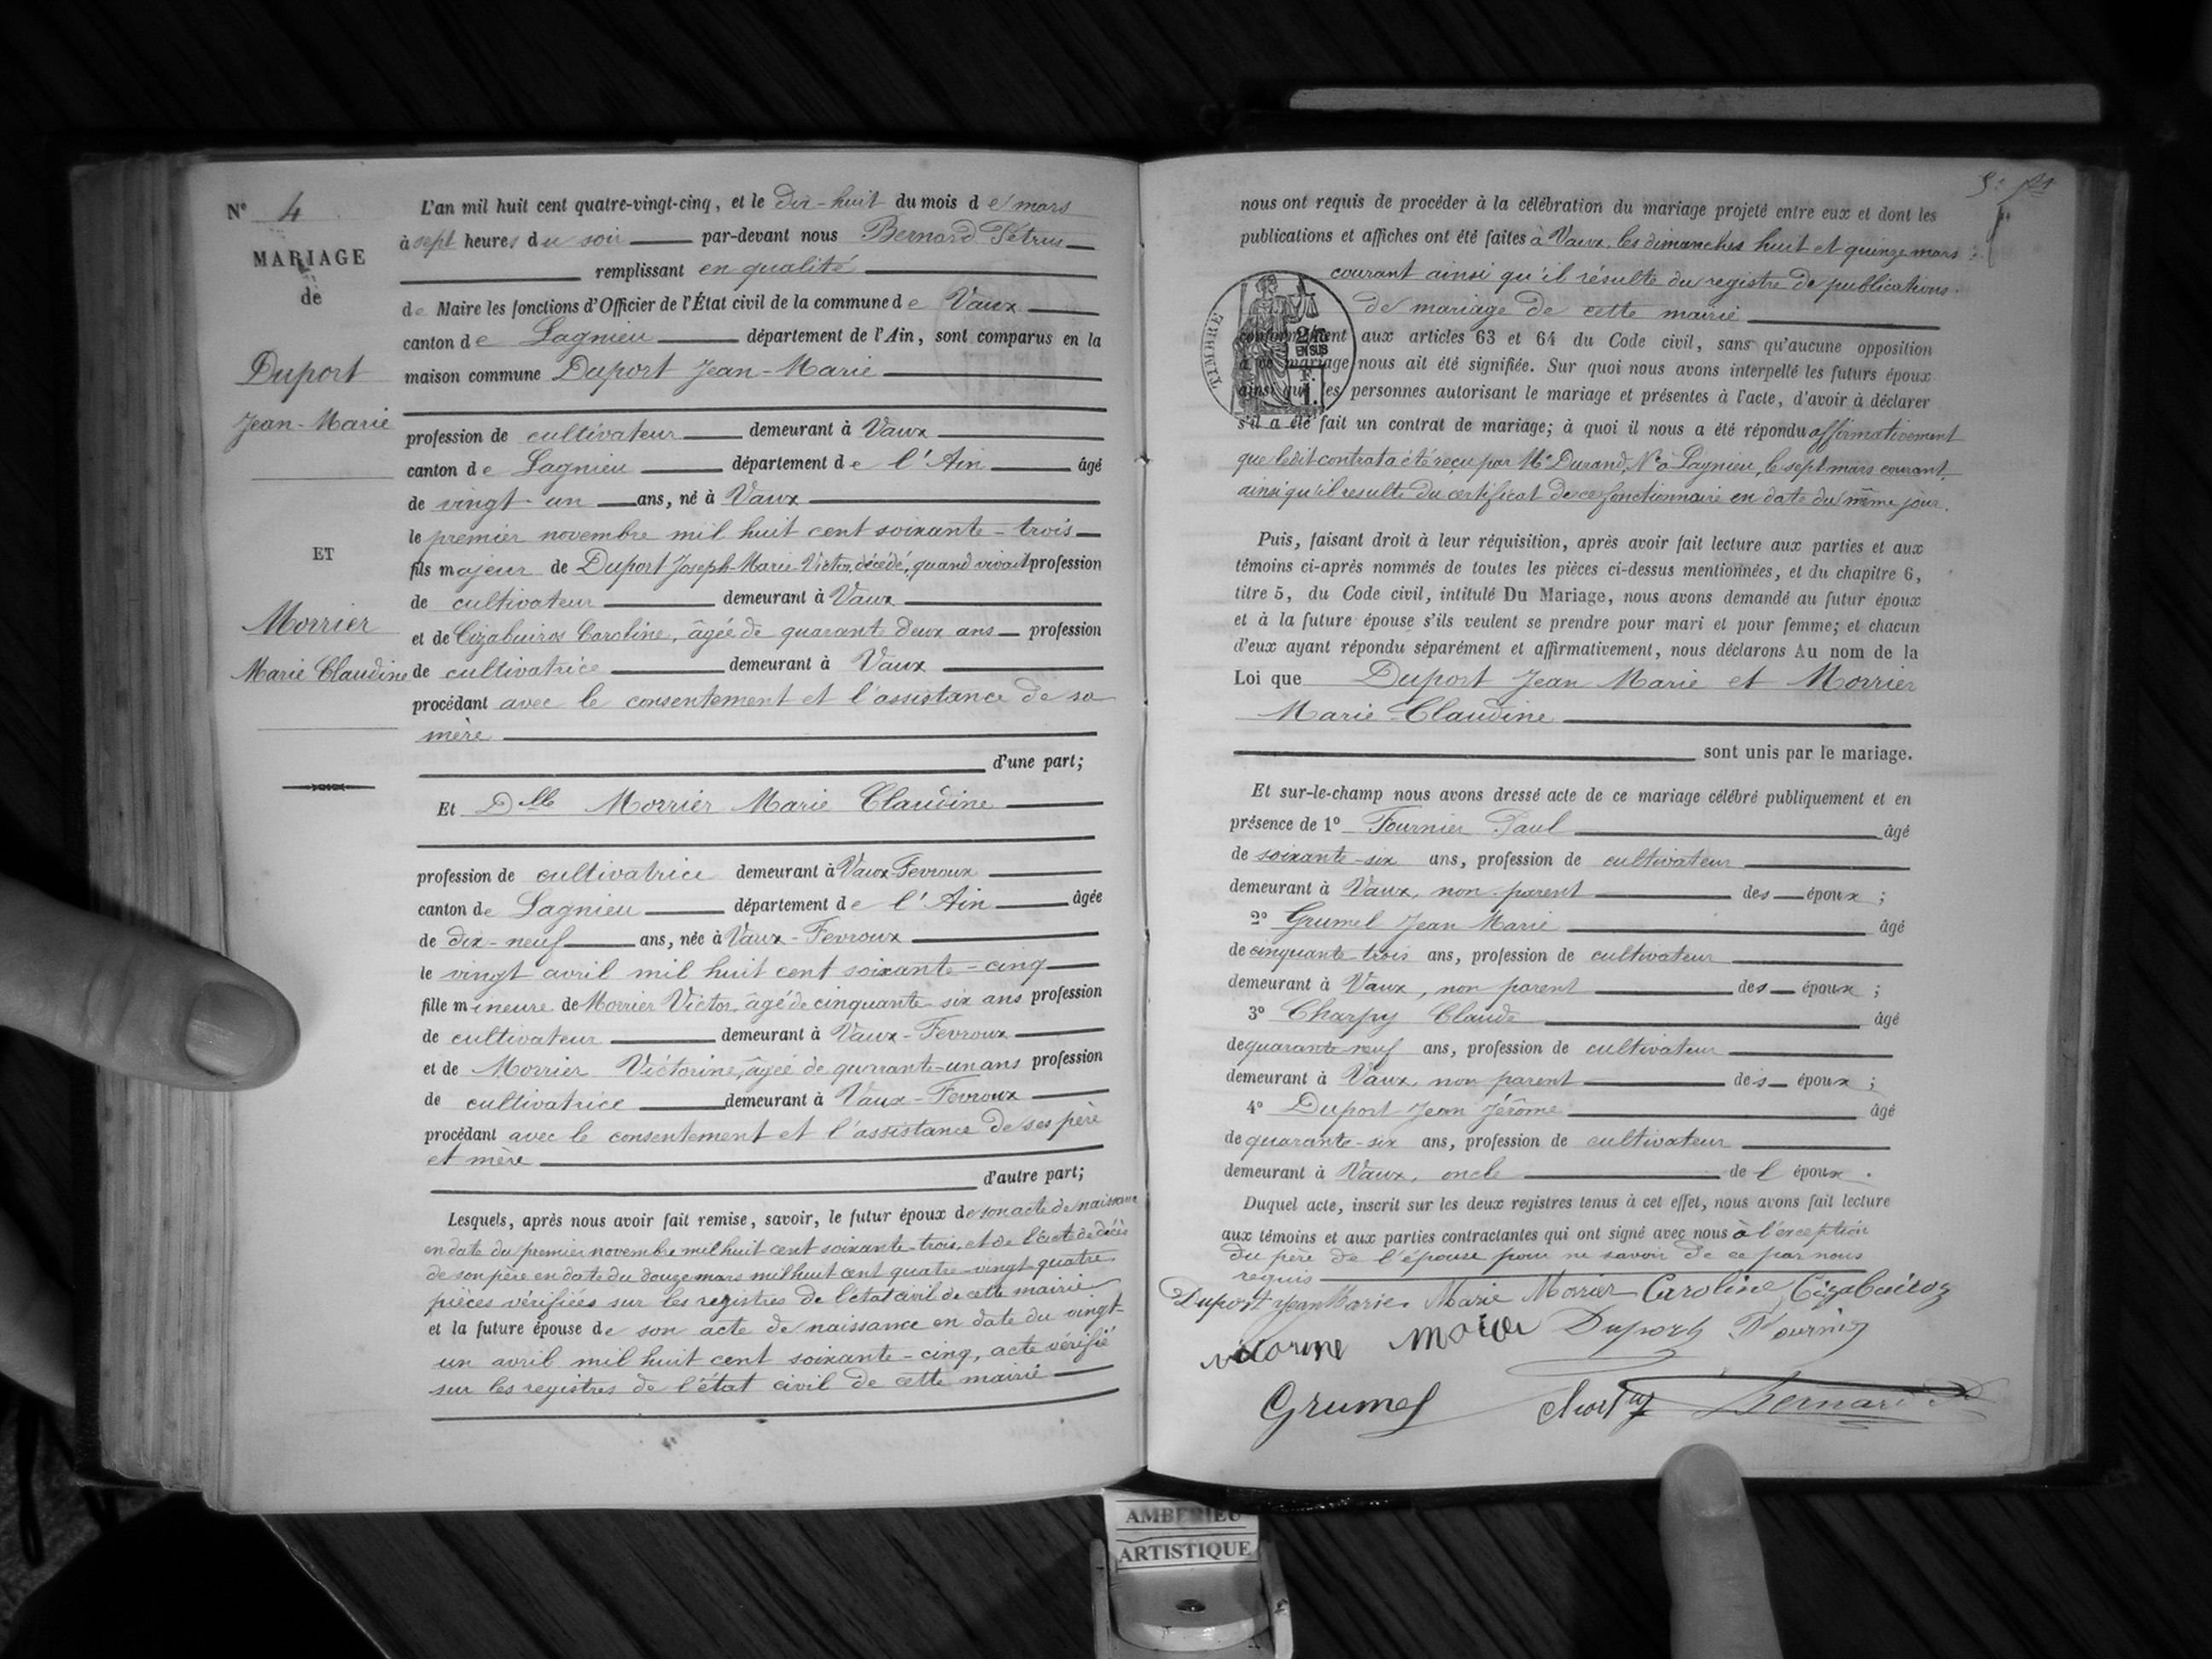 N° 4
MARIAGE
de
Duport
Jean-Marie
ET
Morrier
Marie Claudine
L'an mil huit cent quatre-vingt-cinq, et le dix-huit du mois de mars
à sept heures du soir par-devant nous Bernard Pétrus
remplissant en qualité
de Maire les fonctions d'Officier de l'État civil de la commune de Vaux
canton de Lagnieu département de l'Ain, sont comparus en la
maison commune Duport Jean-Marie
profession de cultivateur demeurant à Vaux
canton de Lagnieu département de l'Ain âgé
de vingt-un ans, né à Vaux
le premier novembre mil huit cent soixante-trois
fils majeur de Duport Joseph-Marie-Victor, décédé, quand vivait profession
de cultivateur demeurant à Vaux
et de Cizabuiroz Caroline, âgée de quarant deux ans profession
de cultivatrice demeurant à Vaux
procédant avec le consentement et l'assistance de sa
mère
d'une part;
Et Dlle Morrier Marie Claudine
profession de cultivatrice demeurant à Vaux-Fevroux
canton de Lagnieu département de l'Ain âgée
de dix-neuf ans, née à Vaux-Fevroux
le vingt avril mil huit cent soixante-cinq
fille mineure de Morrier Victor, âgé de cinquante-six ans profession
de cultivateur demeurant à Vaux-Fevroux
et de Morrier Victorine, âgée de quarante-un ans profession
de cultivatrice demeurant à Vaux-Fevroux
procédant avec le consentement et l'assistance de ses père
et mère
d'autre part;
Lesquels, après nous avoir fait remise, savoir, le futur époux de son acte de naissance
en date du premier novembre mil huit cent soixante-trois, et de l'acte de décès
de son père en date du douze mars mil huit cent quatre-vingt-quatre
pièces vérifiées sur les registres de l'état civil de cette mairie
et la future épouse de son acte de naissance en date du vingt-
un avril mil huit cent soixante-cinq, acte vérifié
sur les registres de l'état civil de cette mairie
nous ont requis de procéder à la célébration du mariage projeté entre eux et dont les
publications et affiches ont été faites à Vaux, les dimanches huit et quinze mars
courant ainsi qu'il résulte du registre de publications
de mariage de cette mairie
TIMBRE
2/10
EN SUS
conformément aux articles 63 et 64 du Code civil, sans qu'aucune opposition
à ce mariage nous ait été signifiée. Sur quoi nous avons interpellé les futurs époux
ainsi que les personnes autorisant le mariage et présentes à l'acte, d'avoir à déclarer
s'il a été fait un contrat de mariage; à quoi il nous a été répondu affirmativement
que ledit contrat a été reçu par Me Durand, Nre à Lagnieu, le sept mars courant,
ainsi qu'il resulte du certificat de ce fonctionnaire en date du même jour.
Puis, faisant droit à leur réquisition, après avoir fait lecture aux parties et aux
témoins ci-après nommés de toutes les pièces ci-dessus mentionnées, et du chapitre 6,
titre 5, du Code civil, intitulé Du Mariage, nous avons demandé au futur époux
et à la future épouse s'ils veulent se prendre pour mari et pour femme; et chacun
d'eux ayant répondu séparément et affirmativement, nous déclarons Au nom de la
Loi que Duport Jean Marie et Morrier
Marie-Claudine
sont unis par le mariage.
Et sur-le-champ nous avons dressé acte de ce mariage célébré publiquement et en
présence de 1° Fournier Paul âgé
de soixante-six ans, profession de cultivateur
demeurant à Vaux, non parent des époux ;
2° Grumel Jean Marie âgé
de cinquante trois ans, profession de cultivateur
demeurant à Vaux, non parent des époux ;
3° Charpy Claude âgé
de quarante neuf ans, profession de cultivateur
demeurant à Vaux, non parent des époux ;
4° Duport Jean Jérôme âgé
de quarante-six ans, profession de cultivateur
demeurant à Vaux, oncle de l'époux .
Duquel acte, inscrit sur les deux registres tenus à cet effet, nous avons fait lecture
aux témoins et aux parties contractantes qui ont signé avec nous à l'exception
du père de l'épouse pour ne savoir de ce par nous
requis
Duport Jean Marie Marie Morrier Caroline Cizabuiroz
Duport Fournier
Grumel Charpy Bernard
AMBERIEU
ARTISTIQUE